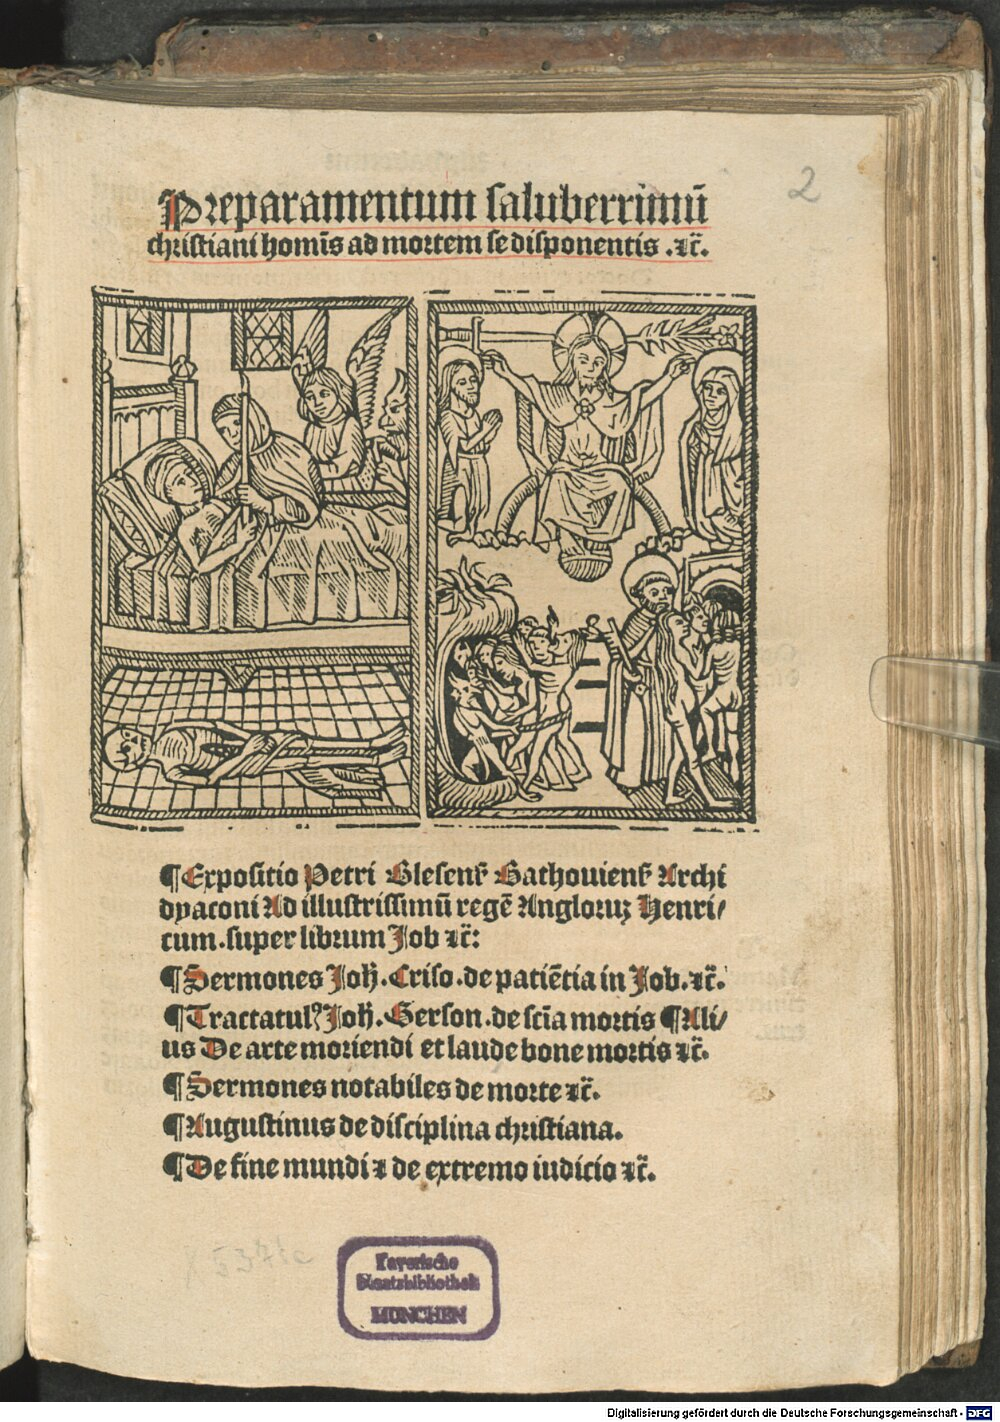 2
Preparamentum saluberrimū
christiani homīs ad mortem se disponentis .ꝛc̄.
¶Expositio Petri Blesenẜ Bathonienẜ Archi
dyaconi Ad illustrissimū regē Angloruꝫ Henri/
cum.super librum Job ꝛc̄:
¶Sermones Joḣ.Criso.de patiētia in Job.ꝛc̄.
¶Tractatulꝰ Joḣ.Gerson.de scīa mortis ¶Ali/
us De arte moriendi et laude bone mortis ꝛc̄.
¶Sermones notabiles de morte ꝛc̄.
¶Augustinus de disciplina christiana.
¶De fine mundi ⁊ de extremo iudicio ꝛc̄.
Bayerische
Staatsbibliothek
MÜNCHEN
Digitalisierung gefördert durch die Deutsche Forschungsgemeinschaft - DFG